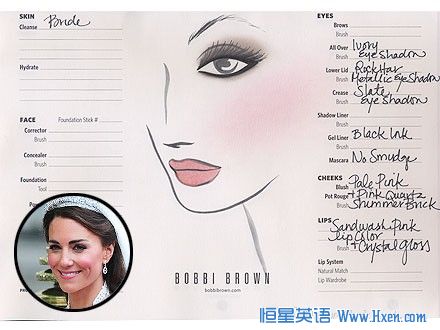 SKIN
Cleanse Bride
Hydrate
FACE Foundation Stick #
Corrector
Brush
Concealer
Brush
Foundation
Tool
BOBBI BROWN
bobbibrown.com
EYES
Brows
Brush
All Over Ivory
Brush Eye Shadow
Lower Lid Rockstar
Brush Metallic Eye Shadow
Crease Slate
Brush Eye Shadow
Shadow Liner
Brush
Gel Liner Black Ink
Brush
Mascara No Smudge
CHEEKS
Blush Pale Pink
Pot Rouge + Pink Quartz
Brush Shimmerbrick
LIPS
Sandwash Pink
Lip Color
+ Crystal gloss
Lip System
Natural Match
Lip Wardrobe
恒星英语 Www.Hxen.com